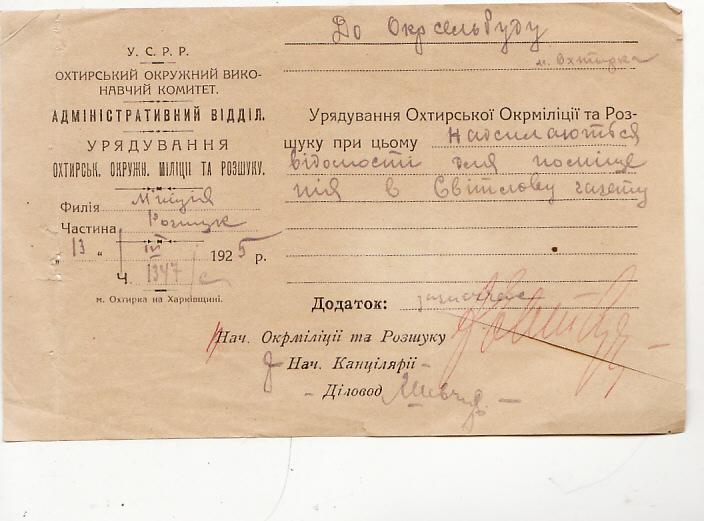 У. С. Р. Р.
ОХТИРСЬКИЙ ОКРУЖНИЙ ВИКО-
НАВЧИЙ КОМИТЕТ.
АДМІНІСТРАТИВНИЙ ВІДДІЛ.
УРЯДУВАННЯ
ОХТИРСЬК. ОКРУЖН. МІЛІЦІІ ТА РОЗШУКУ.
Филія Міліція
Частина Розшук
„ 13 “ III 1925 р.
Ч. 1347/с
м. Охтирка на Харківщині.
До Окрсельбуду
м. Охтирка
Урядування Охтирської Окрміліції та Роз-
шуку при цьому Надсилаються
відомости для поміще
ня в Світлову газету
Додаток: зазначене
Нач. Окрміліції та Розшуку
Нач. Канцілярії
Діловод